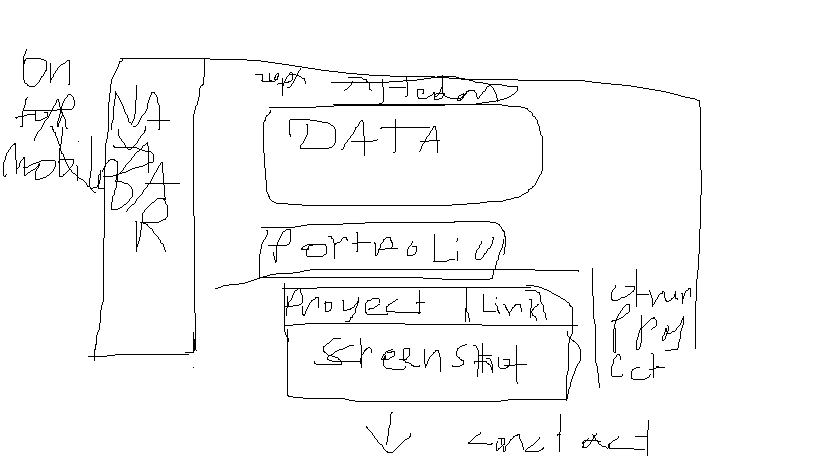 On
top
mobile
NA
VA
BA
R
DATA
PORTFOLIO
Proyect Link
Screenshot
contact